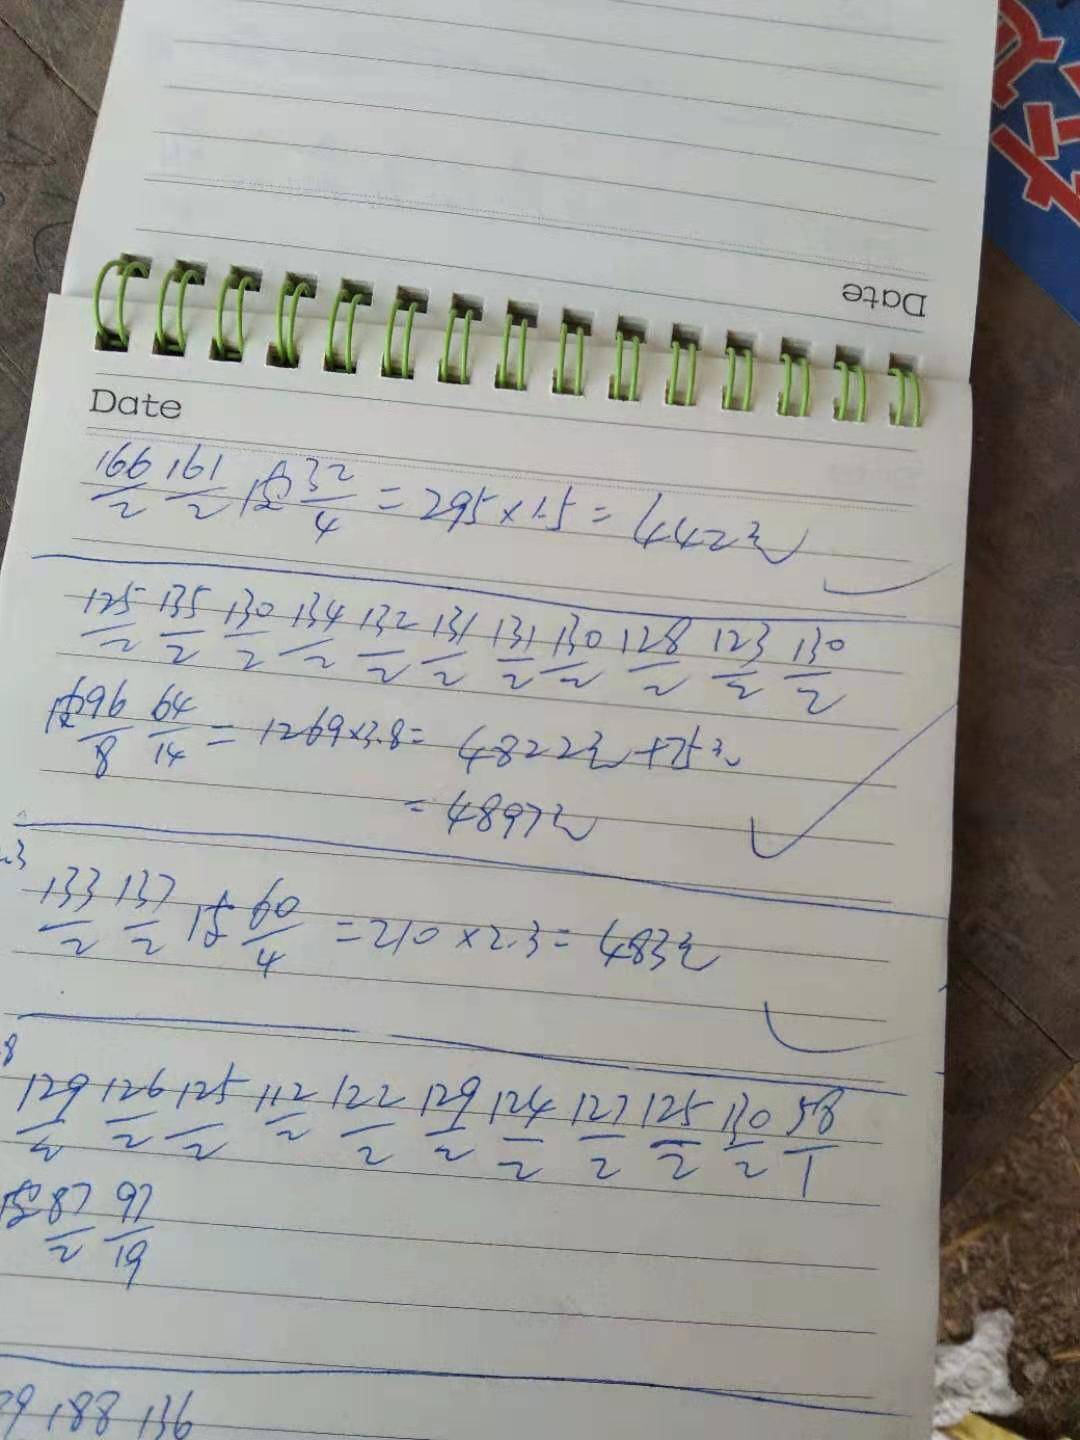 Date
Date
166/2 161/2 皮 32/4 = 295×1.5 = 442元
125/2 135/2 130/2 134/2 132/2 131/2 131/2 130/2 128/2 123/2 130/2
皮 96/8 64/14 = 1269×3.8 = 4822元+75元
= 4897元
.3
133/2 137/2 皮 60/4 = 210×2.3 = 483元
8
129/2 126/2 125/2 112/2 122/2 129/2 124/2 127/2 125/2 130/2 58/1
皮 87/2 97/19
29 188 136